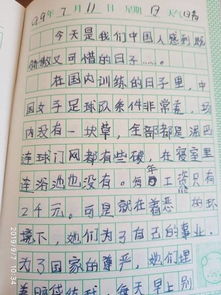 99年7月11日 星期日 天气晴
今天是我们中国人感到既
骄傲又可惜的日子…。
在国内训练的日子里，中
国女子足球队条件非常差，球
内没有一块草，全部都是泥巴
连球门网都有些破，在寝室里
连浴池也没有。每年工资只有
24元。可是就在着恶 的环
境下，她们为了自己的事业，
为了国家的尊严，她们埋
每天早上别
2019/07/7 10:34